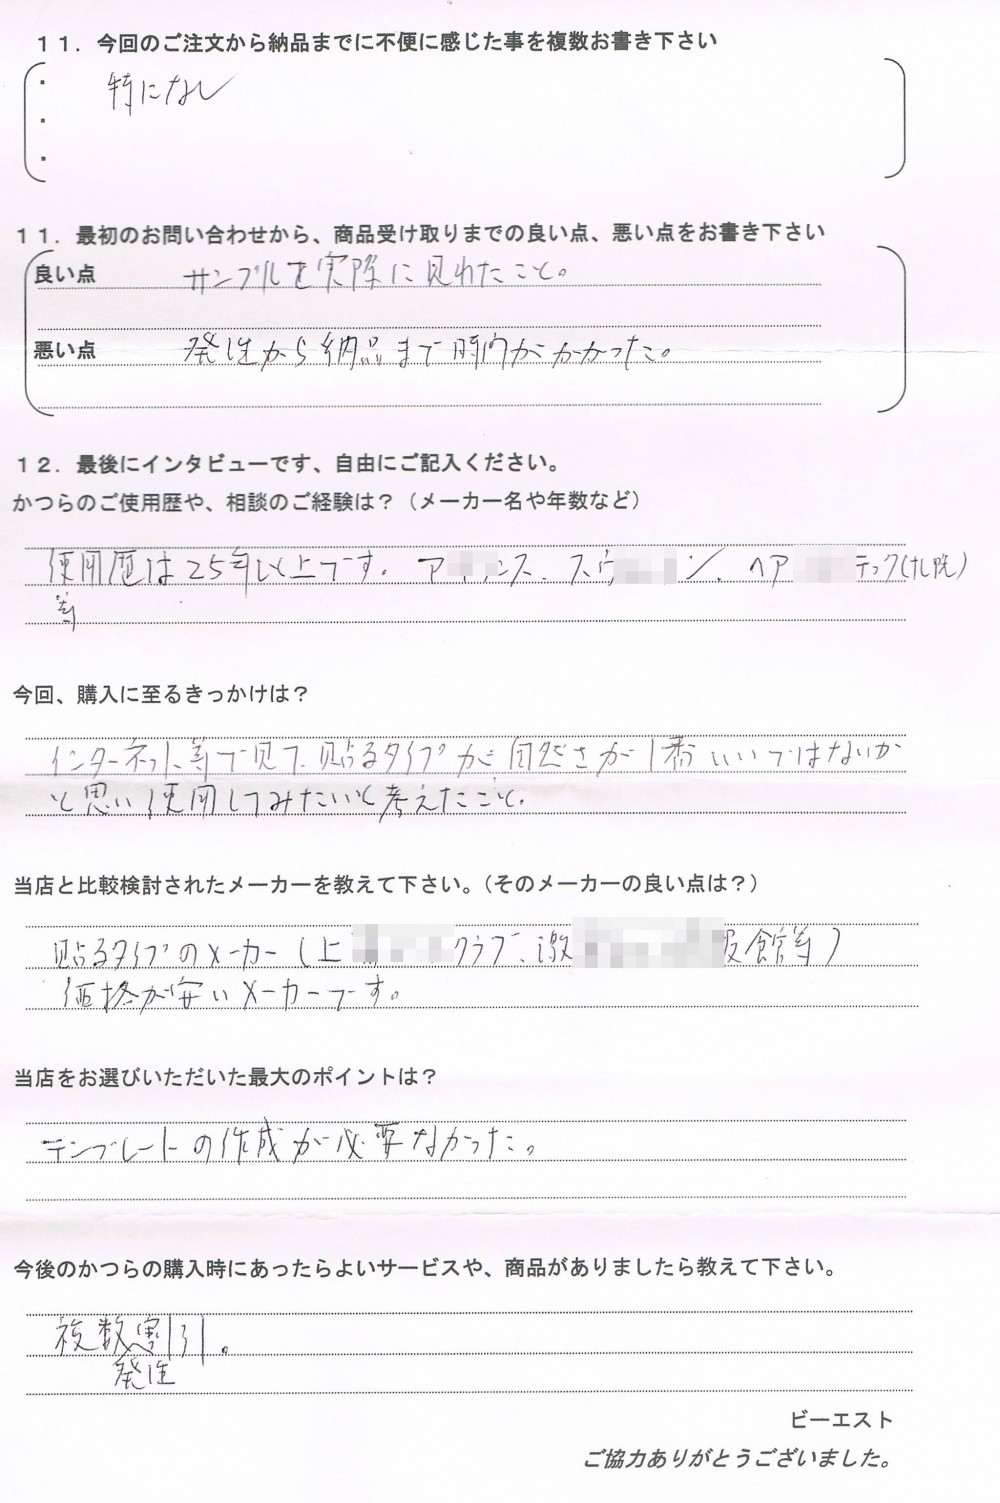 １１．今回のご注文から納品までに不便に感じた事を複数お書き下さい
・ 特になし
・
・
１１．最初のお問い合わせから、商品受け取りまでの良い点、悪い点をお書き下さい
良い点 サンプルを実際に見れたこと。
悪い点 発注から納品まで時間がかかった。
１２．最後にインタビューです、自由にご記入ください。
かつらのご使用歴や、相談のご経験は？（メーカー名や年数など）
使用歴は25年以上です。ア ンス、スウ ン、ヘア テック(札幌)
等
今回、購入に至るきっかけは？
インターネット等で見て、貼るタイプが自然さが1番いいではないか
と思い使用してみたいと考えたこと。
当店と比較検討されたメーカーを教えて下さい。（そのメーカーの良い点は？）
貼るタイプのメーカー（上 クラブ、激 館等）
価格が安いメーカーです。
当店をお選びいただいた最大のポイントは？
テンプレートの作成が必要なかった。
今後のかつらの購入時にあったらよいサービスや、商品がありましたら教えて下さい。
複数割引。
発注
ビーエスト
ご協力ありがとうございました。